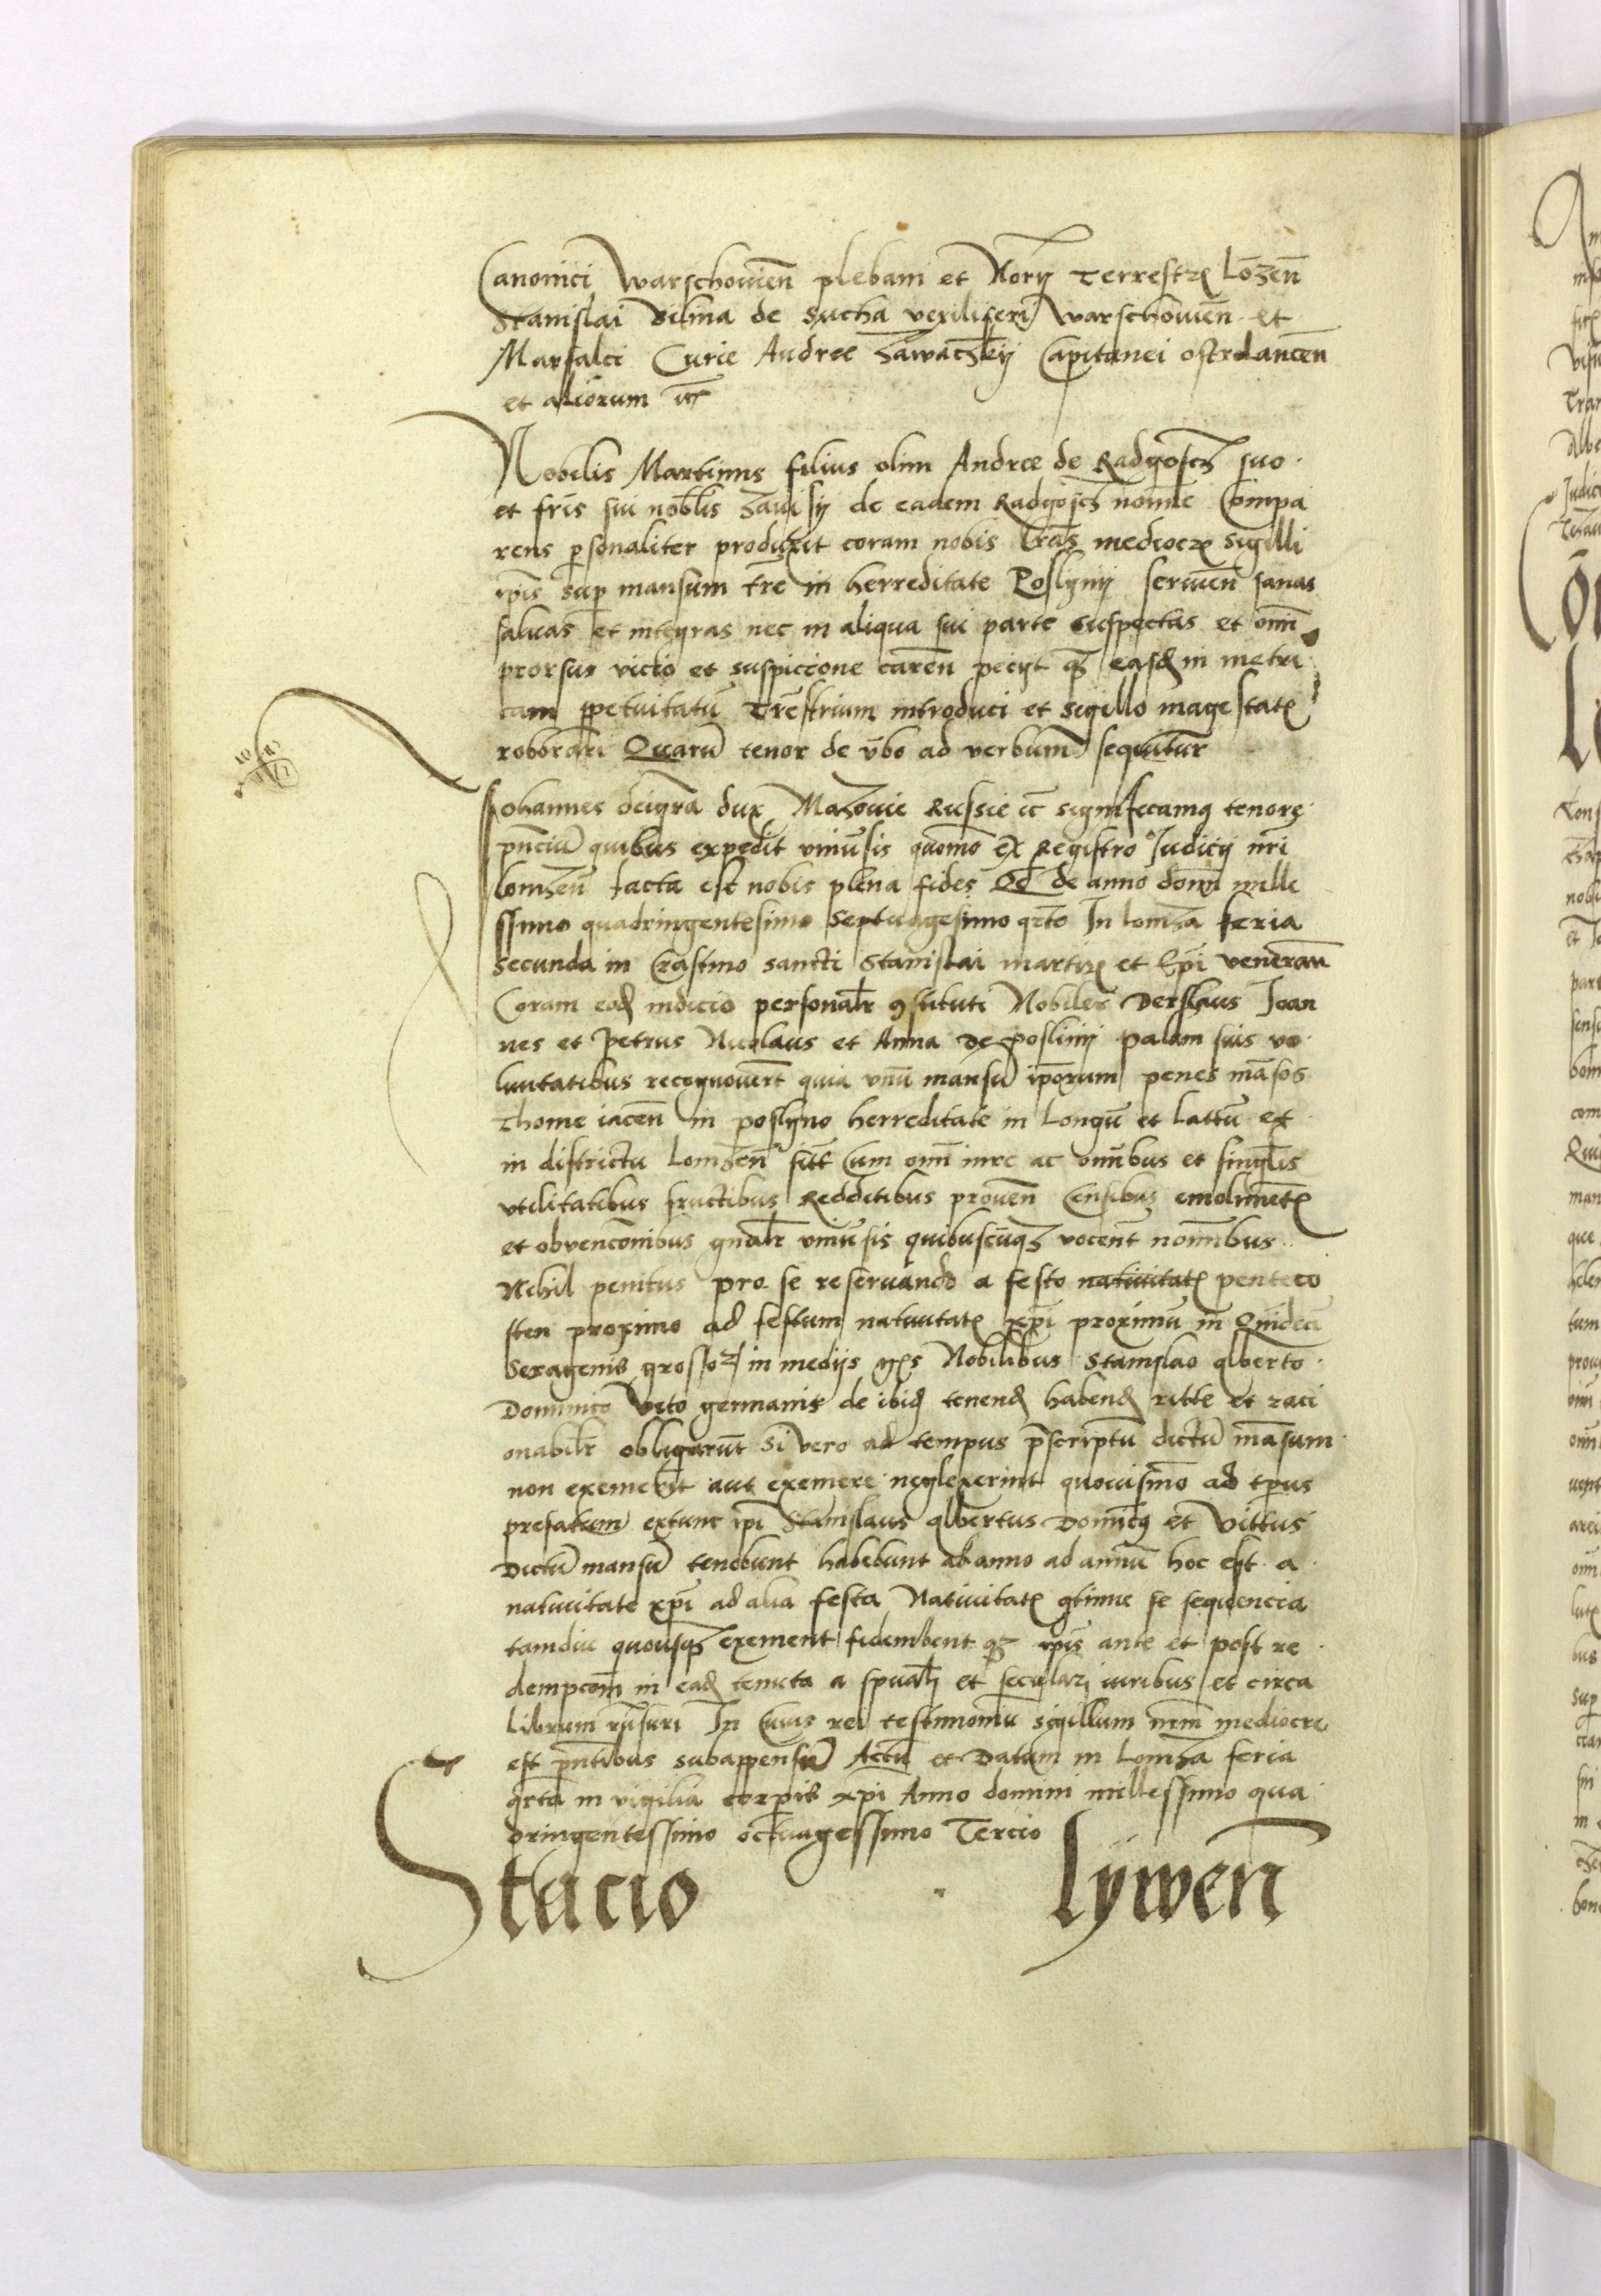 Canonici Warschouien̄ plebani et Norÿ Terrestrꝭ Lōzen̄
Stanislai Vilina de Sucha vexiliferi Warschouien̄ et
Marsalci Curie Andree Zawaczkÿ Capitanei ostrolancen̄
et aliorum
Nobilis Martinus filius olim Andree de Radgoscz suo
et fris̄ sui noblis̄ Zauisÿ de eadem Radgoscz noīne Compa
rens ꝑsonaliter produxit coram nobis lrās mediocrꝭ sigilli
ip̄is suꝑ mansum tre̅ in herreditate Poslynÿ seruien̄ sanas
saluas et integras nec in aliqua sui parte suspectas et om̄i
prorsus vicio et suspiccione caren̄ pecÿt qꝫ easdꝭ in metri
cam ꝑpetuitatū Tre̅strium introduci et sigillo magestatꝭ
roborari Quarū tenor de v̄bo ad verbum sequitur
Johannes deigrā dux Mazouie Russie ꝛc̄ significamꝰ tenore
pn̄ciū quibus expedit vniu̅sis quōmo ex Registro Judicÿ nr̄i
lomzen̄ facta est nobis plena fides Qd̄ de anno dom̄i mille
ssimo quadringentesimo septuagesimo qr̄to In lomza feria
secunda in Crastino sancti Stanislai martirꝭ et Ep̄i veneran̄
Coram eodꝭ iudicio personalr̄ ꝯstituti Nobiles Derslaus Joan
nes et Petrus Nicolaus et Anna de poslinÿ palam suis vo
luntatibus recognouer̄t quia vnū mansū ip̄orum penes mā̅sos
Thome iacen̄ in poslyno herreditate in Longū et Lattū et
in districtu Lomzen̄ sitt̄ Cum om̄i iure ac om̄ibus et singlis̄
vtilitatibus fructibus Redditibus prouen̄ Censibus emolimētꝭ
et obvencōnibus gnālr̄ vniu̅sis quibuscūqꝫ vocent̄ nom̄ibus
Nihil penitus pro se reseruando a festo natiuitatꝭ penteco
sten proximo ad festum natiuitatꝭ xp̄i proximū in Quīdeci
Sexagenis grossoꝝ in medÿs gꝭs Nobilibus Stanislao alberto
Dominico Vito germanis de ibidꝭ tenendꝭ habendꝭ ritte et raci
onabilr̄ obligarūt Si vero ad tempus p̄scriptū dictū mā̅sum
non exemerīt aut exemere neglexerint quouismō ad tp̄us
prefatum extunc ip̄i Stanislaus albertus Dominicꝰ et Vittus
Dictū mansū tenebunt habebunt ab anno ad annū hoc est a
natiuitate xp̄i ad alia festa Natiuitatꝭ ꝯtinue se sequencia
tamdiu quousqꝫ exement fidembent qꝫ ip̄is ante et post re
dempcōm in eadꝭ tenuta a spūalꝭ et secularꝭ iuribus et circa
librum In Cuius rei testimoniū sigillum nrm̄ mediocre
est pn̄tibus subappensū Actū et Datum in Lomza feria
qr̄ta in vigilia corporis xp̄i Anno domini millessimo qua
dringentessimo octuagessimo Tercio
Stacio Lÿwen̄